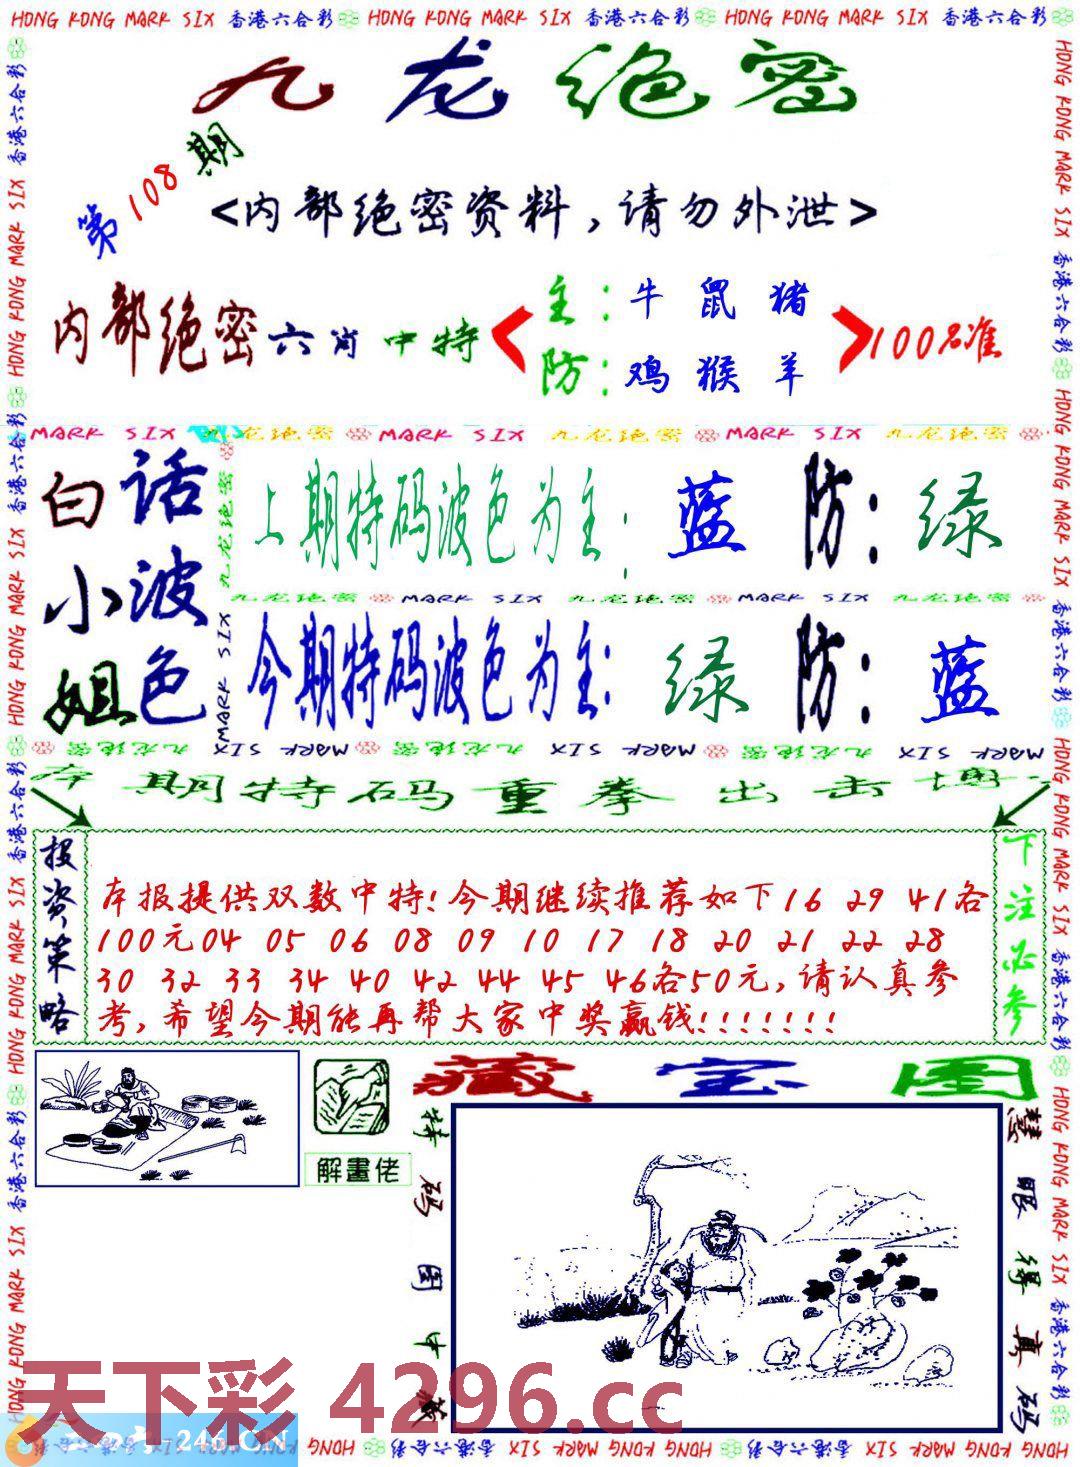 HONG KONG MARK SIX 香港六合彩 HONG KONG MARK SIX 香港六合彩 HONG KONG MARK SIX 香港六合彩
九龙绝密
第108期
<内部绝密资料,请勿外泄>
内部绝密六肖中特
主:牛 鼠 猪
防:鸡 猴 羊
100%准
MARK SIX 九龙绝密 MARK SIX 九龙绝密 MARK SIX 九龙绝密
白话
小波
姐色
上期特码波色为主: 蓝 防: 绿
九龙绝密 MARK SIX 九龙绝密 MARK SIX 九龙绝密
今期特码波色为主: 绿 防: 蓝
本期特码重拳出击
投资策略
本报提供双数中特!今期继续推荐如下16 29 41各
100元04 05 06 08 09 10 17 18 20 21 22 28
30 32 33 34 40 42 44 45 46各50元,请认真参
考,希望今期能再帮大家中奖赢钱!!!!!!!
下注必参
解畫佬
藏宝图
特码图中藏
慧眼得真码
天下彩 4296.cc
246.CN